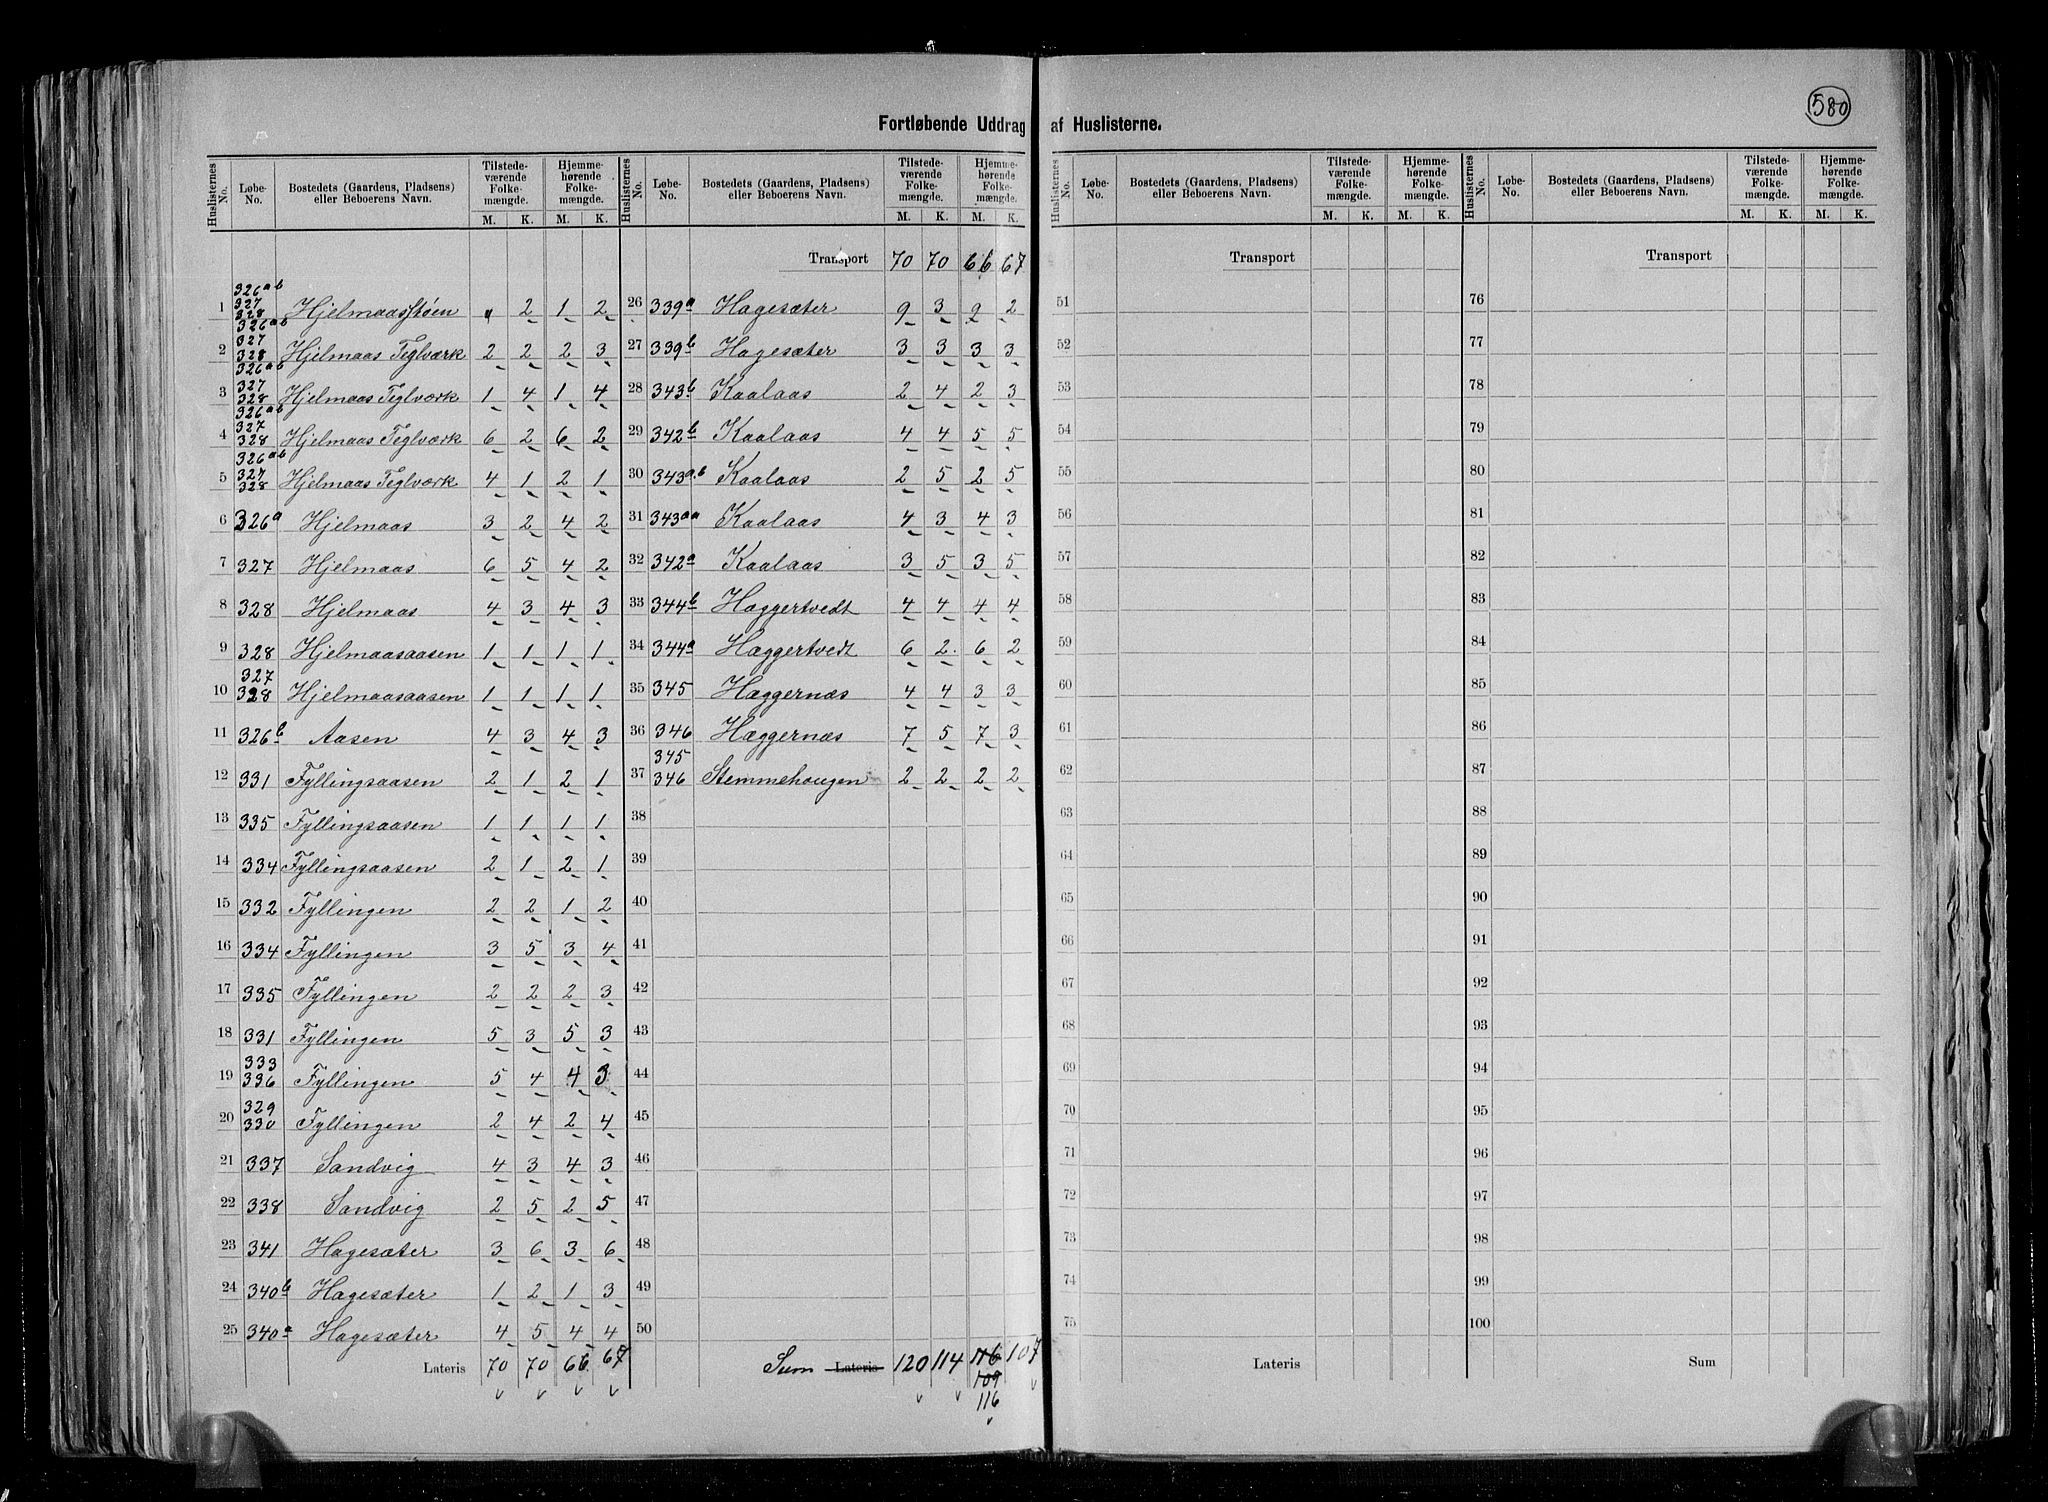 580
Fortløbende Uddrag af Huslisterne.
Huslisternes No. Løbe-No. Bostedets (Gaardens, Pladsens) eller Beboerens Navn. Tilstedeværende Folkemængde. M. K. Hjemmehørende Folkemængde. M. K.
1 326ab 327 328 Hjelmaasstøen 2 1 2
2 326ab 327 328 Hjelmaas Teglværk 2 2 2 3
3 326ab 327 328 Hjelmaas Teglværk 1 4 1 4
4 326ab 327 328 Hjelmaas Teglværk 6 2 6 2
5 326ab 327 328 Hjelmaas Teglværk 4 1 2 1
6 326a Hjelmaas 3 2 4 2
7 327 Hjelmaas 6 5 4 2
8 328 Hjelmaas 4 3 4 3
9 328 Hjelmaasaasen 1 1 1 1
10 327 328 Hjelmaasaasen 1 1 1 1
11 326b Aasen 4 3 4 3
12 331 Fyllingsaasen 2 1 2 1
13 335 Fyllingsaasen 1 1 1 1
14 334 Fyllingsaasen 2 1 2 1
15 332 Fyllingen 2 2 1 2
16 334 Fyllingen 3 5 3 4
17 335 Fyllingen 2 2 2 3
18 331 Fyllingen 5 3 5 3
19 333 336 Fyllingen 5 4 4 3
20 329 330 Fyllingen 2 4 2 4
21 337 Sandvig 4 3 4 3
22 338 Sandvig 2 5 2 5
23 341 Hagesæter 3 6 3 6
24 340b Hagesæter 1 2 1 3
25 340a Hagesæter 4 5 4 4
Lateris 70 70 66 67
Huslisternes No. Løbe-No. Bostedets (Gaardens, Pladsens) eller Beboerens Navn. Tilstedeværende Folkemængde. M. K. Hjemmehørende Folkemængde. M. K.
Transport 70 70 66 67
26 339a Hagesæter 9 3 9 2
27 339b Hagesæter 3 3 3 3
28 343b Kaalaas 2 4 2 3
29 342b Kaalaas 4 4 5 5
30 343a.b Kaalaas 2 5 2 5
31 343aa Kaalaas 4 3 4 3
32 342a Kaalaas 3 5 3 5
33 344b Hæggertvedt 4 4 4 4
34 344a Hæggertvedt 6 2 6 2
35 345 Hæggernæs 4 4 3 3
36 346 Hæggernæs 7 5 7 3
37 345 346 Stemmehougen 2 2 2 2
38
39
40
41
42
43
44
45
46
47
48
49
50
Sum Lateris 120 114 116 107
109
116
Huslisternes No. Løbe-No. Bostedets (Gaardens, Pladsens) eller Beboerens Navn. Tilstedeværende Folkemængde. M. K. Hjemmehørende Folkemængde. M. K.
Transport
51
52
53
54
55
56
57
58
59
60
61
62
63
64
65
66
67
68
69
70
71
72
73
74
75
Lateris
Huslisternes No. Løbe-No. Bostedets (Gaardens, Pladsens) eller Beboerens Navn. Tilstedeværende Folkemængde. M. K. Hjemmehørende Folkemængde. M. K.
Transport
76
77
78
79
80
81
82
83
84
85
86
87
88
89
90
91
92
93
94
95
96
97
98
99
100
Sum